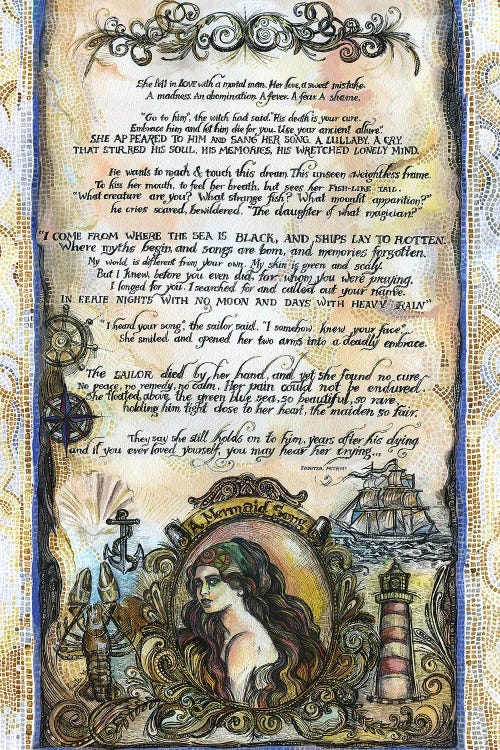 She fell in LOVE with a mortal man. Her love, a sweet mistake.
A madness. An abomination. A fever. A fear. A shame.
"Go to him", the witch had said. "His death is your cure.
Embrace him and let him die for you. Use your ancient allure".
SHE APPEARED TO HIM AND SANG HER SONG. A LULLABY. A CRY.
THAT STIRRED HIS SOUL, HIS MEMORIES, HIS WRETCHED LONELY MIND.
He wants to reach & touch this dream. This unseen weightless frame.
To kiss her mouth, to feel her breath, but sees her FISH-LIKE TAIL.
"What creature are you? What strange fish? What moonlit apparition?"
he cries scared, bewildered. "The daughter of what magician?"
"I COME FROM WHERE THE SEA IS BLACK, AND SHIPS LAY TO ROTTEN.
Where myths begin and songs are born, and memories forgotten.
My world is different from your own. My skin is green and scaly.
But I knew, before you even did, for whom you were praying.
I longed for you. I searched for and called out your name.
IN EERIE NIGHTS WITH NO MOON AND DAYS WITH HEAVY RAIN"
"I heard your song", the sailor said. "I somehow knew your face".
She smiled and opened her two arms into a deadly embrace.
The SAILOR died by her hand, and yet she found no cure.
No peace, no remedy, no calm. Her pain could not be endured.
She floated above the green blue sea, so beautiful, so rare
holding him tight close to her heart, the maiden so fair.
They say she still holds on to him, years after his dying
and if you ever loved yourself, you may hear her crying...
A Mermaid Song